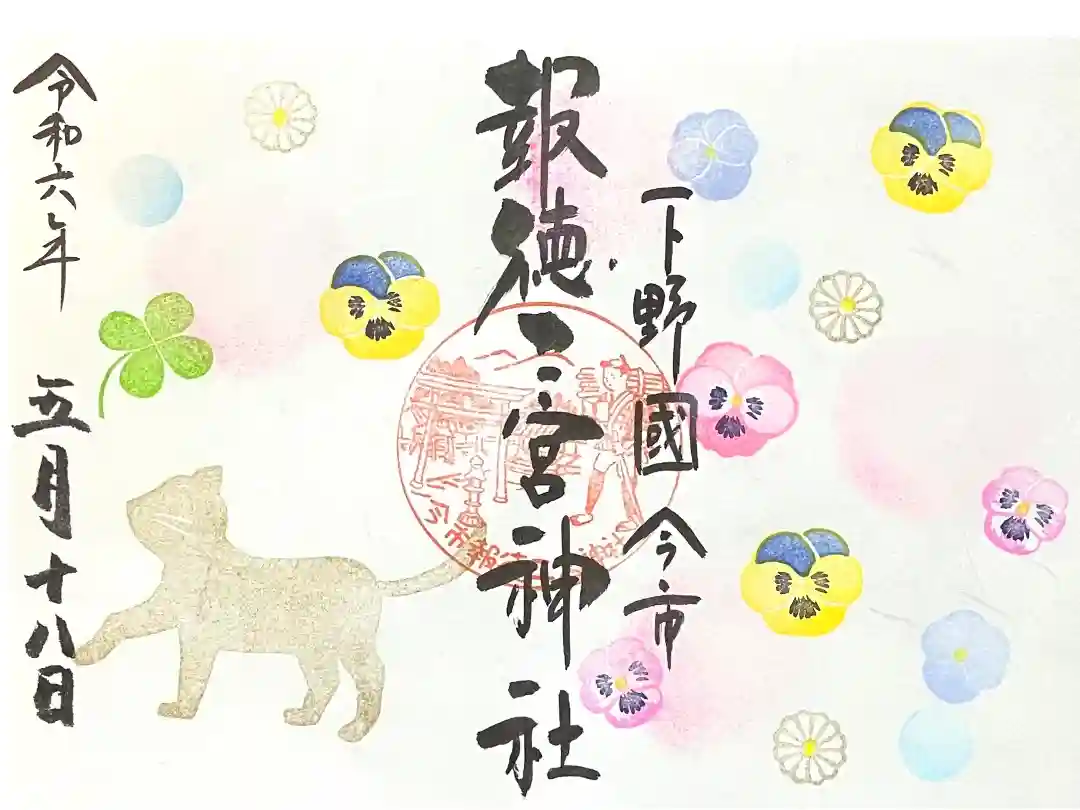 下野國 今市
報徳二宮神社
今市報 神社
令和六年 五月十八日